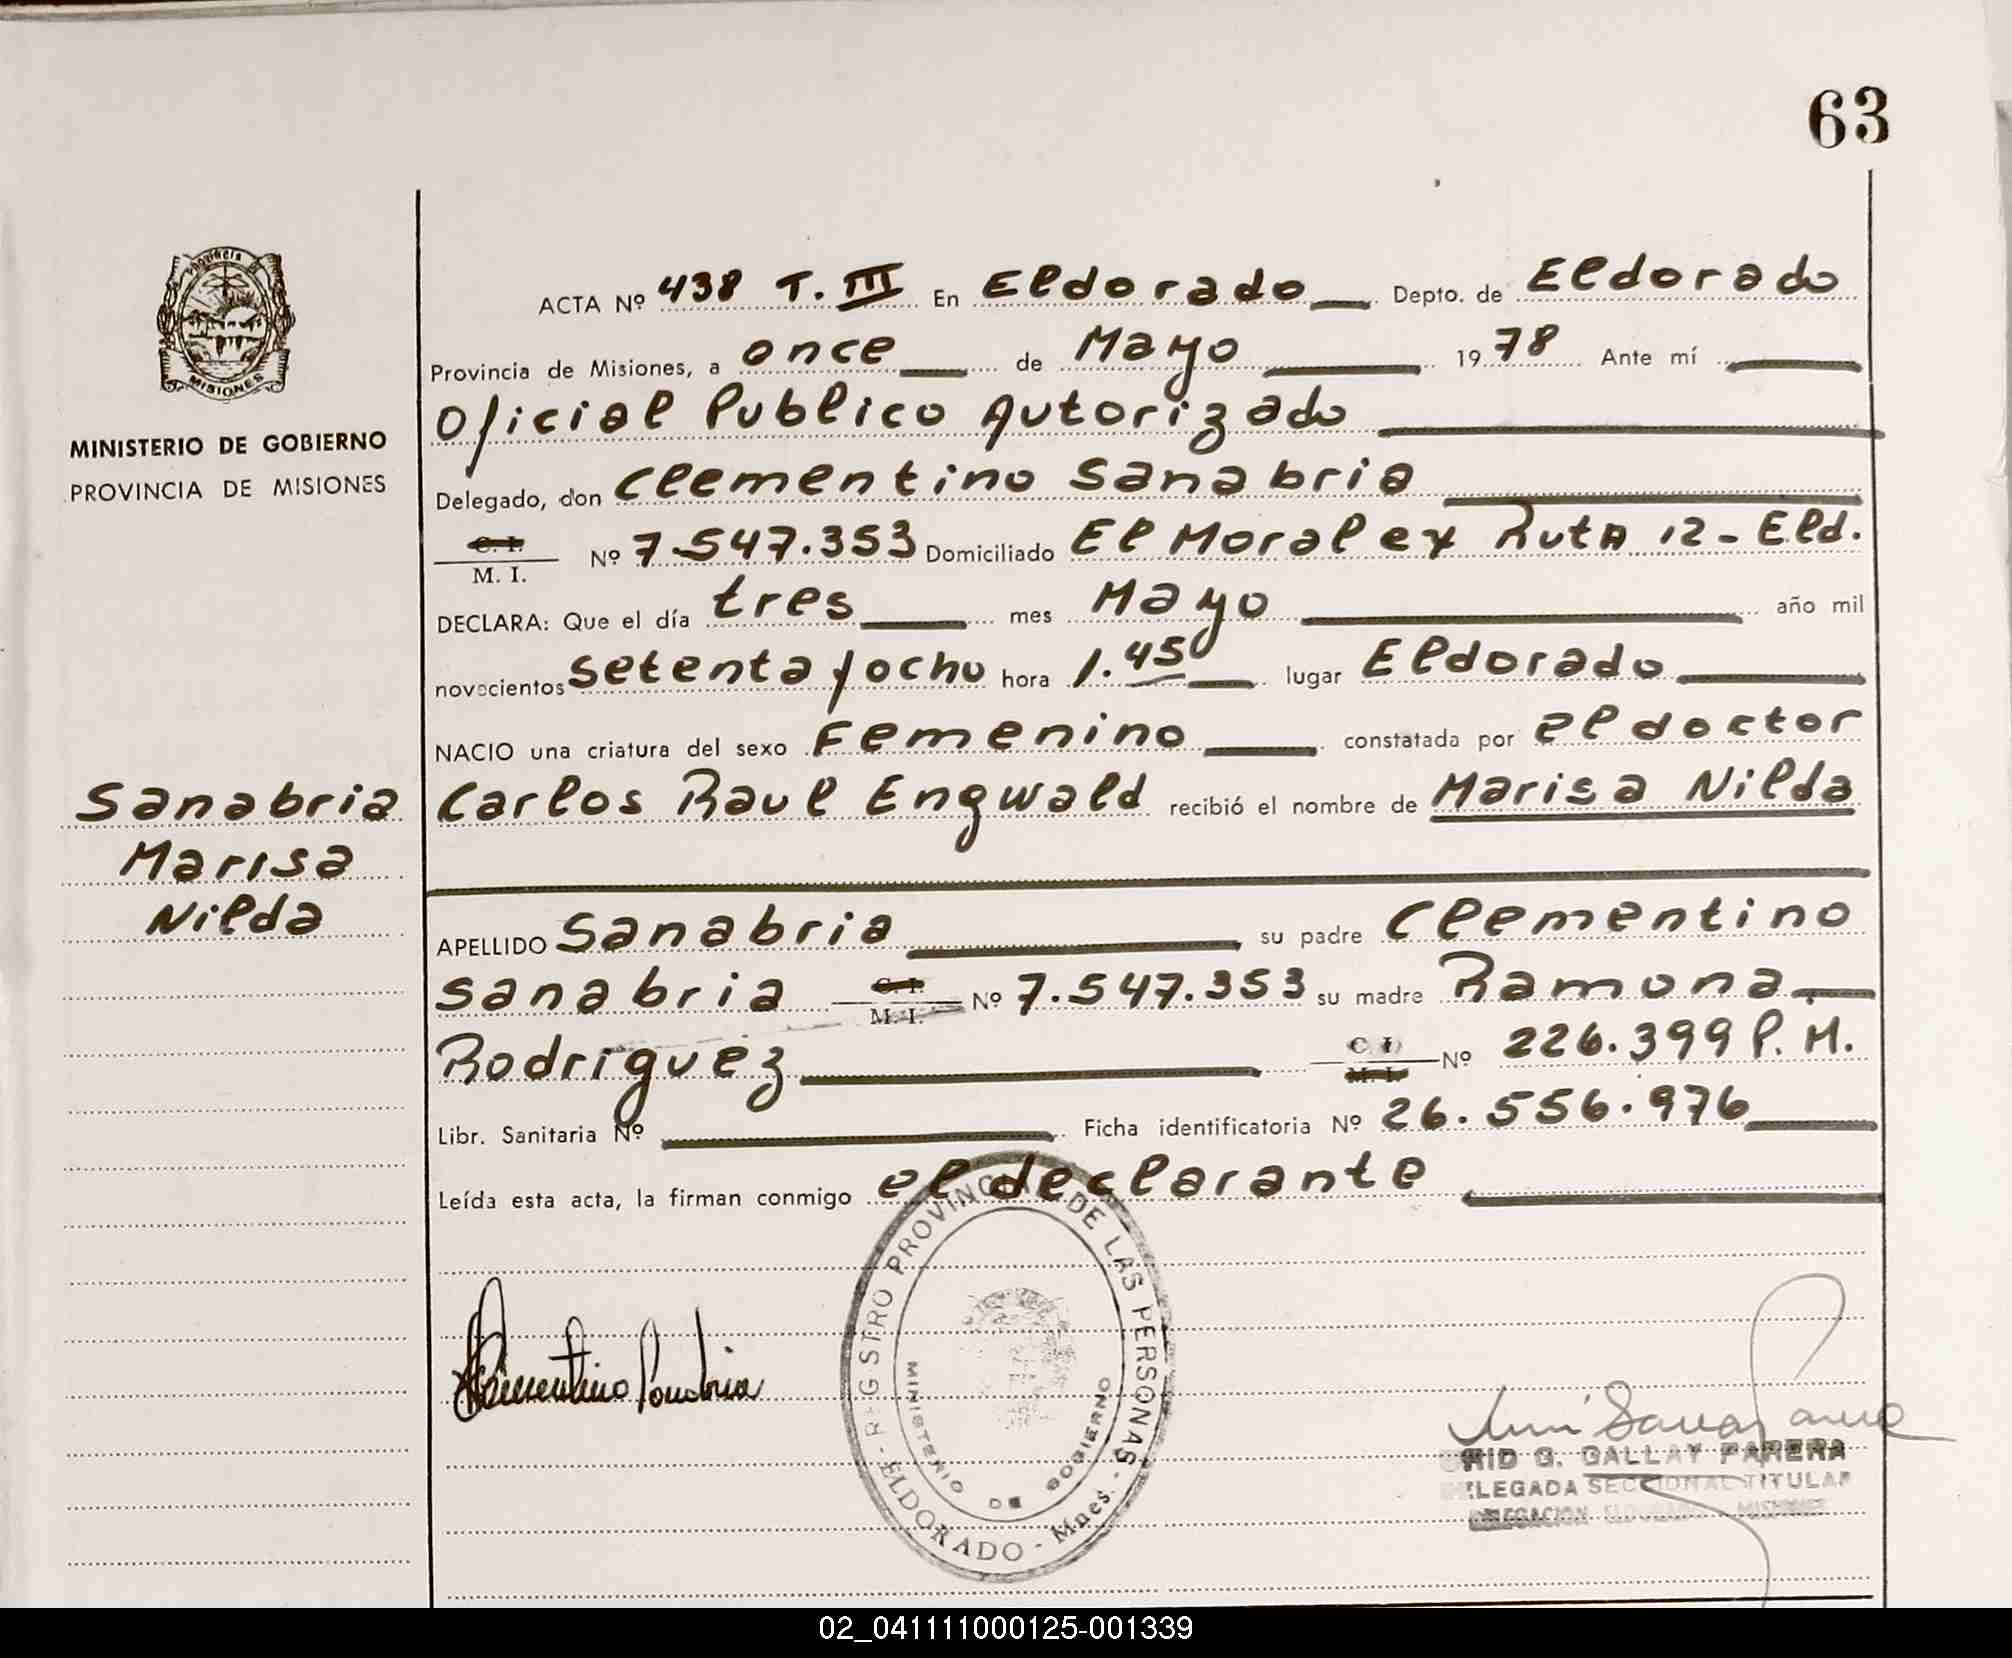 63
Provincia de
MISIONES
MINISTERIO DE GOBIERNO
PROVINCIA DE MISIONES
ACTA Nº 438 T. III En Eldorado Depto. de Eldorado
Provincia de Misiones, a once de Mayo 1978 Ante mí
Oficial Publico Autorizado
Delegado, don Clementino Sanabria
C. I.
M. I. Nº 7.547.353 Domiciliado El Moral ex Ruta 12 - Eld.
DECLARA: Que el día tres mes Mayo año mil
novecientos setenta y ocho hora 1.45 lugar Eldorado
NACIO una criatura del sexo Femenino constatada por el doctor
Carlos Raul Engwald recibió el nombre de Marisa Nilda
Sanabria
Marisa
Nilda
APELLIDO Sanabria su padre Clementino
Sanabria C. I. M. I. Nº 7.547.353 su madre Ramona
Rodriguez C. I. M. I. Nº 226.399 P. M.
Libr. Sanitaria Nº Ficha identificatoria Nº 26.556.976
Leída esta acta, la firman conmigo el declarante
REGISTRO PROVINCIAL DE LAS PERSONAS - ELDORADO - Mnes.
MINISTERIO DE GOBIERNO
Clementino Sanabria
G. GALLAY PARERA
DELEGADA SECCIONAL TITULAR
DELEGACION ELDORADO MISIONES
02_041111000125-001339